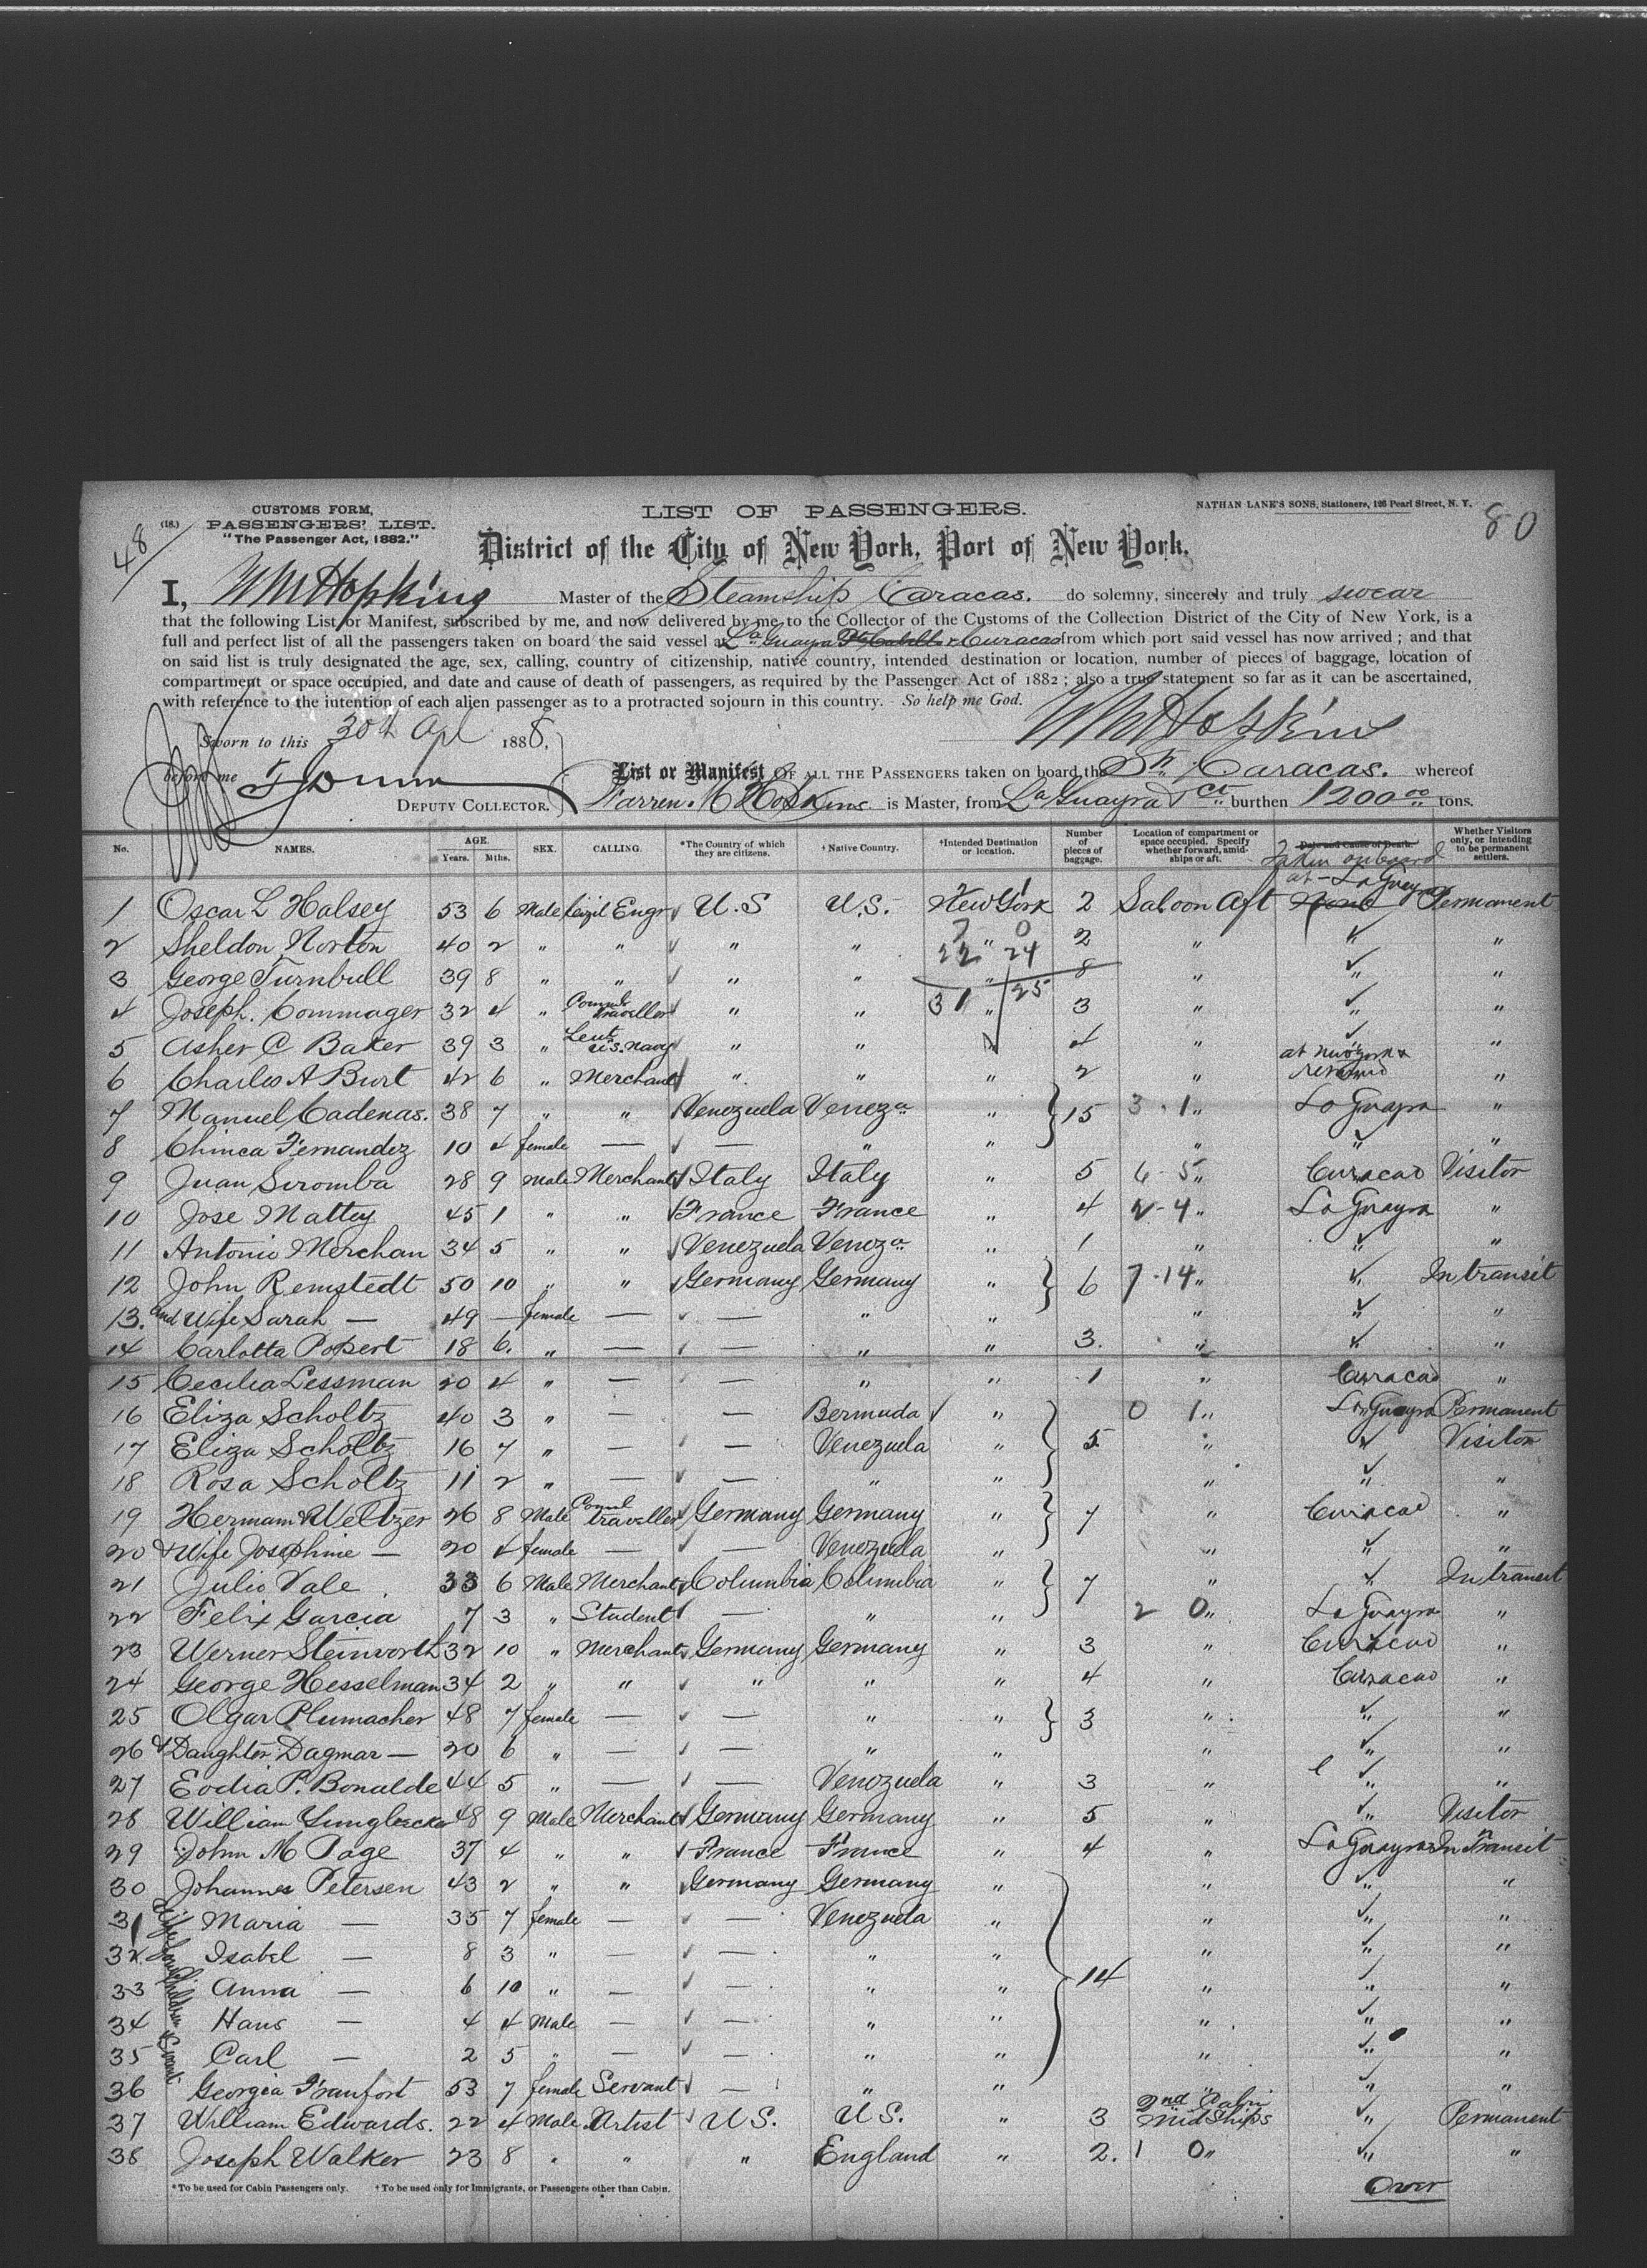 48
(18.)
CUSTOMS FORM,
PASSENGERS' LIST.
"The Passenger Act, 1882."
LIST OF PASSENGERS.
NATHAN LANE'S SONS, Stationers, 126 Pearl Street, N. Y.
80
District of the City of New York, Port of New York.
I, WM Hopkins Master of the Steamship Caracas. do solemny, sincerely and truly swear
that the following List or Manifest, subscribed by me, and now delivered by me to the Collector of the Customs of the Collection District of the City of New York, is a
full and perfect list of all the passengers taken on board the said vessel at La Guayra Pto Cabello & Curacao from which port said vessel has now arrived ; and that
on said list is truly designated the age, sex, calling, country of citizenship, native country, intended destination or location, number of pieces of baggage, location of
compartment or space occupied, and date and cause of death of passengers, as required by the Passenger Act of 1882 ; also a true statement so far as it can be ascertained,
with reference to the intention of each alien passenger as to a protracted sojourn in this country. So help me God.
WM Hopkins
Sworn to this 30th Apl 1888,
before me
DEPUTY COLLECTOR.
List or Manifest OF ALL THE PASSENGERS taken on board the Str Caracas. whereof
Warren M Hopkins is Master, from La Guayra &ct burthen 1200 00 tons.
No. NAMES. AGE. Years. Mths. SEX. CALLING. *The Country of which they are citizens. †Native Country. †Intended Destination or location. Number of pieces of baggage. Location of compartment or space occupied. Specify whether forward, amidships or aft. Date and Cause of Death. Whether Visitors only, or Intending to be permanent settlers.
Taken onboard
at - La Guayra
1 Oscar L Halsey 53 6 Male Civil Engr U.S U.S. New York 2 Saloon Aft None Permanent
2 Sheldon Norton 40 2 " " " " " 2 " " "
7 0
22 24
3 George Turnbull 39 8 " " " " " 8 " " "
31 25
4 Joseph. Commager 32 4 " Comml traveller " " " 3 " " "
5 Asher C Baker 39 3 " Leut U.S. Navy " " " 4 " "
6 Charles A Burt 42 6 " Merchant " " " 2 " at New York & returned "
7 Manuel Cadenas. 38 7 " " Venezuela Veneza " 15 3 . 1 " La Guayra "
8 Chinca Fernandez 10 4 female — — " " " " "
9 Juan Siromba 28 9 Male Merchant Italy Italy " 5 6 - 5 " Curacao Visitor
10 Jose Mattey 45 1 " " France France " 4 2 - 4 " La Guayra "
11 Antonio Merchan 34 5 " " Venezuela Veneza " 1 " " "
12 John Remstedt 50 10 " " Germany Germany " 6 7 - 14 " " In transit
13. and Wife Sarah — 49 — female — — " " " " "
14 Carlotta Popert 18 6. " — — " " 3. " " "
15 Cecilia Lessman 20 4 " — — " " 1 " Curacao "
16 Eliza Scholtz 40 3 " — — Bermuda " 0 1 " La Guayra Permanent
17 Eliza Scholtz 16 7 " — — Venezuela " 5 " " Visitor
18 Rosa Scholtz 11 2 " — — " " " " "
19 Hermann Weltzer 26 8 Male Comml traveller Germany Germany " 7 " Curacao "
20 & Wife Josephine — 20 4 female — — Venezuela " " " "
21 Julio Vale 33 6 Male Merchant Columbia Columbia " 7 " " In transit
22 Felix Garcia 7 3 " Student — " " 2 0 " La Guayra "
23 Werner Steinworth 32 10 " Merchant Germany Germany " 3 " Curacao "
24 George Hesselman 34 2 " " " " " 4 " Curacao "
25 Olgar Plumacher 48 7 female — — " " 3 " " "
26 & Daughter Dagmar — 20 6 " — — " " " " "
27 Eodia P. Bonalde 44 5 " — — Venezuela " 3 " " "
28 William 48 9 Male Merchant Germany Germany " 5 " " Visitor
29 John M Page 37 4 " " France France " 4 " La Guayra In Transit
30 Johannes Petersen 43 2 " " Germany Germany " " " "
31 Maria — 35 7 female — — Venezuela " " " "
32 Isabel — 8 3 " — — " " " " "
33 Anna — 6 10 " — — " " 14 " " "
34 Hans — 4 4 Male — — " " " " "
35 Carl — 2 5 " — — " " " " "
Wife and Children & Servant
36 Georgia Franfort 53 7 female Servant — " " " " "
37 William Edwards. 22 4 Male Artist U S. U S. " 3 2nd Cabin Mid Ships " Permanent
38 Joseph Walker 23 8 " " " England " 2. 1 0 " " "
*To be used for Cabin Passengers only. †To be used only for Immigrants, or Passengers other than Cabin.
Over